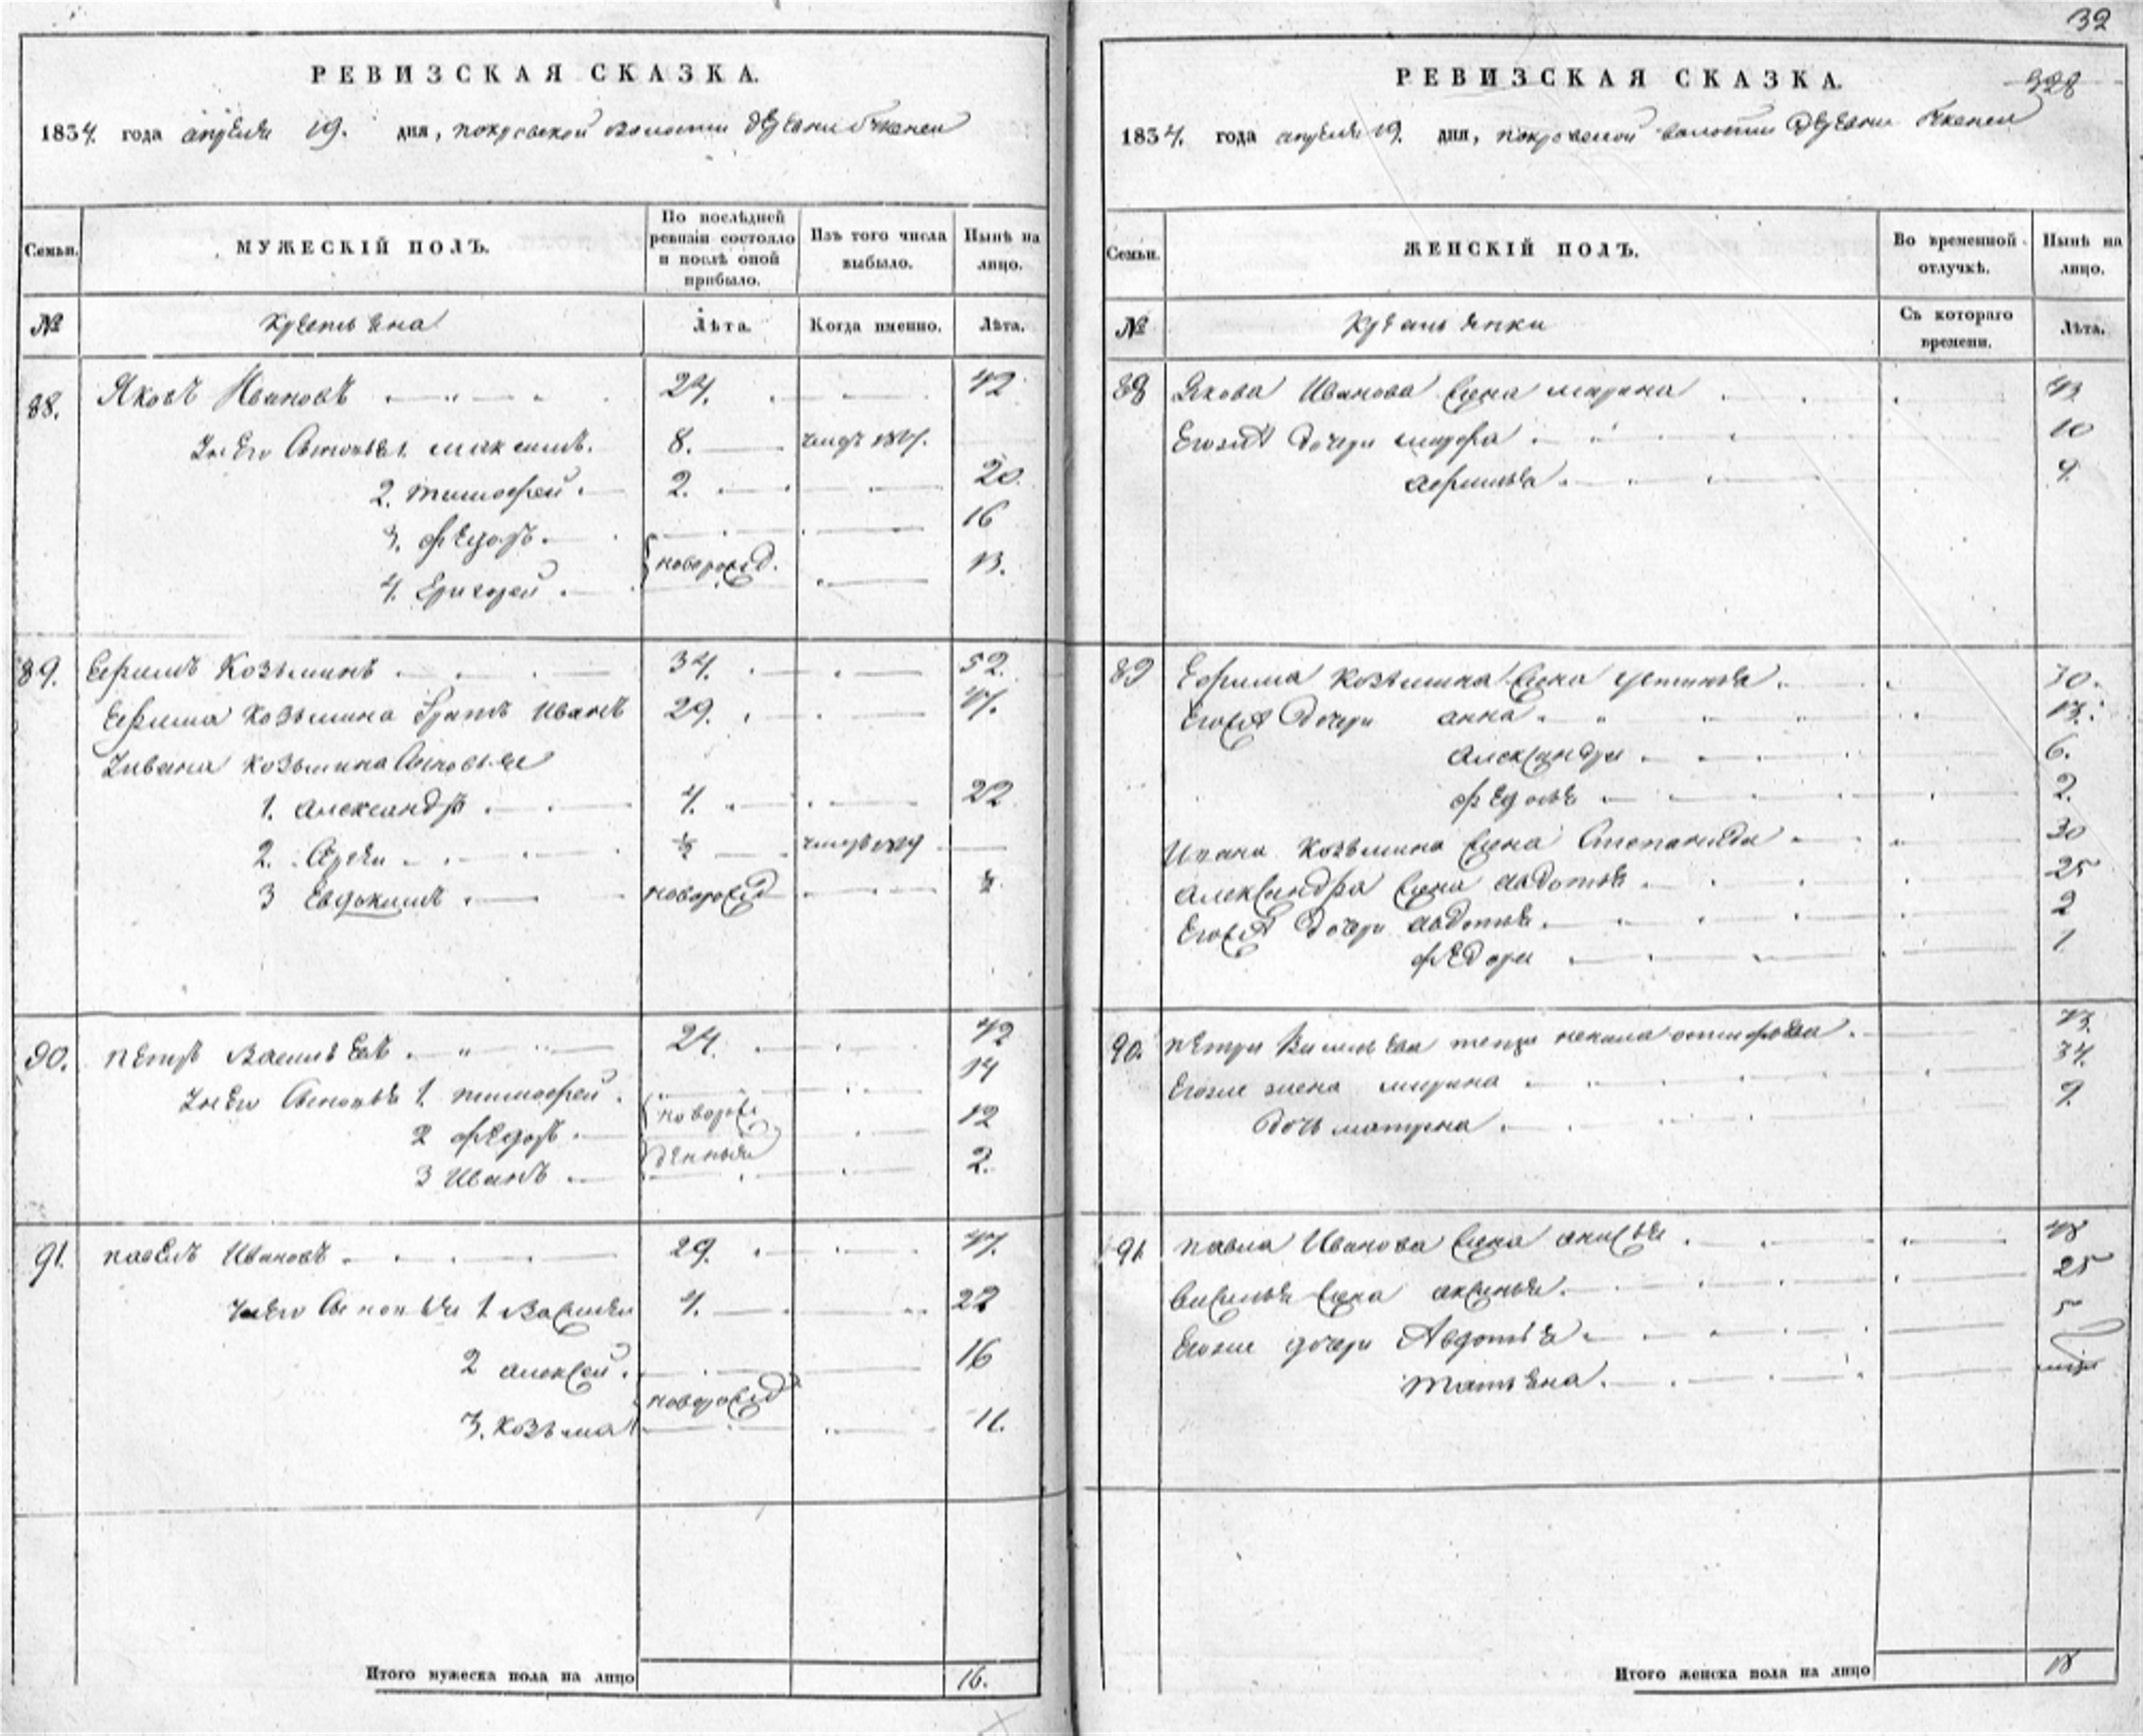 РЕВИЗСКАЯ СКАЗКА.
1834. года апреля 19. дня, покровской волости деревни
Семьи.
МУЖЕСКІЙ ПОЛЪ.
По послѣдней ревизіи состояло и послѣ оной прибыло.
Изъ того числа выбыло.
Нынѣ на лицо.
№
Крестьяна
Лѣта.
Когда именно.
Лѣта.
88. Яковъ Ивановъ 24. 42
Унего Сыновья 1. максимъ. 8.
2. тимофей. 2. 20
3. федоръ. 16
новорожд.
4. Григорей 13.
89. Ефимъ Козьминъ 34. 52.
Ефима Козьмина братъ иванъ 29. 47.
Уивана козьмина Сыновья
1. александръ 4. 22
2. ½
3 Евдокимъ новорожд ½
90. петръ Васильевъ 24. 42
Унего Сыновья 1. тимофей. 14
новорож
2 федоръ. 12
денныя
3 Иванъ 2.
91. павелъ Ивановъ 29. 47.
Унего Сыновья 1 Василей 4. 22
2 алексей. 16
новорожд
3. козьма 11.
Итого мужеска пола на лицо 16.
32
328
РЕВИЗСКАЯ СКАЗКА.
1834. года апреля 19. дня, покровской волости деревни
Семьи.
ЖЕНСКІЙ ПОЛЪ.
Во временной отлучкѣ.
Нынѣ на лицо.
№
Крестьянки
Съ котораго времени.
Лѣта.
88 Якова Иванова жена марина 43
Егожъ дочери 10
афимья 9.
89 Ефима козьмина жена устинья. 30.
Егожъ дочери анна 13.
александра 6.
федосья 2.
Ивана козьмина жена Степанида 30
александра жена авдотья 25
Егожъ дочери авдотья. 2
федора 1
90. петра Васильева 73.
Егоже жена марина 34.
дочь матрена 9.
91 павла Иванова жена анисья 48
василья жена аксинья. 25
Егоже дочери Авдотья 5
татьяна.
Итого женска пола на лицо 18